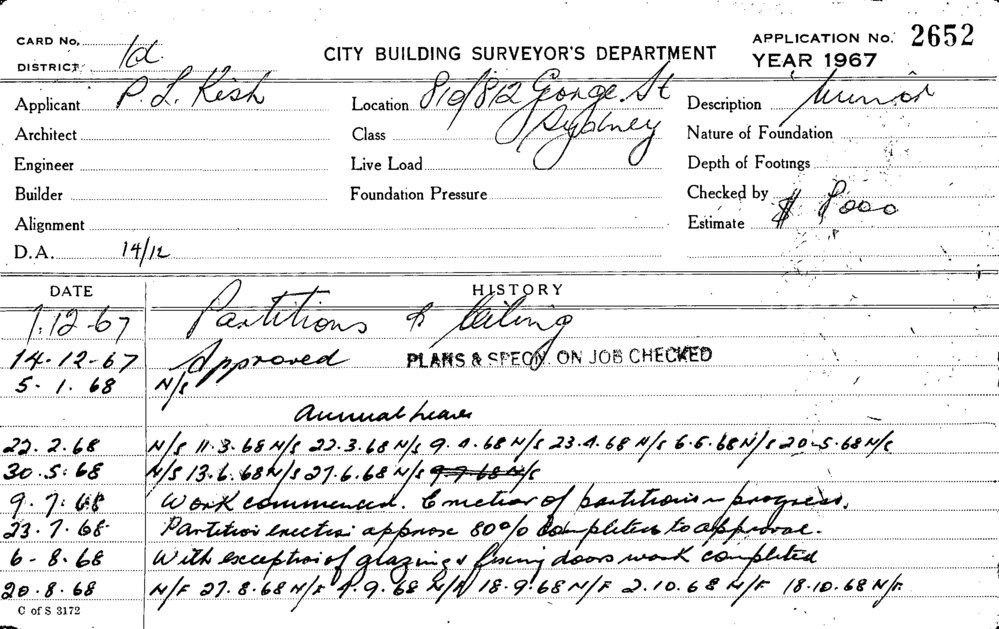 CARD No. CITY BUILDING SURVEYOR'S DEPARTMENT APPLICATION No. 2652
DISTRICT 1d. YEAR 1967
Applicant P. L. Kesh Location 810/812 George St Description Minor
Sydney
Architect Class Nature of Foundation
Engineer Live Load Depth of Footings
Builder Foundation Pressure Checked by
Alignment Estimate $ 8000
D.A. 14/12
DATE HISTORY
1.12-67 Partitions & Ceiling
14-12-67 Approved PLANS & SPECN. ON JOB CHECKED
5.1.68 N/S
Annual leave
22.2.68 N/S 11.3.68 N/S 22.3.68 N/S 9.4.68 N/S 23.4.68 N/S 6.5.68 N/S 20-5.68 N/S
30.5.68 N/S 13.6.68 N/S 27.6.68 N/S 9.7.68 N/S
9.7.68 Work commenced. Erection of partitions in progress.
23.7.68 Partition erection approx 80% completed to approval.
6-8.68 With exception of glazing & fixing doors work completed
20.8.68 N/F 27.8.68 N/F 4.9.68 N/F 18.9.68 N/F 2.10.68 N/F 18.10.68 N/F.
C of S 3172